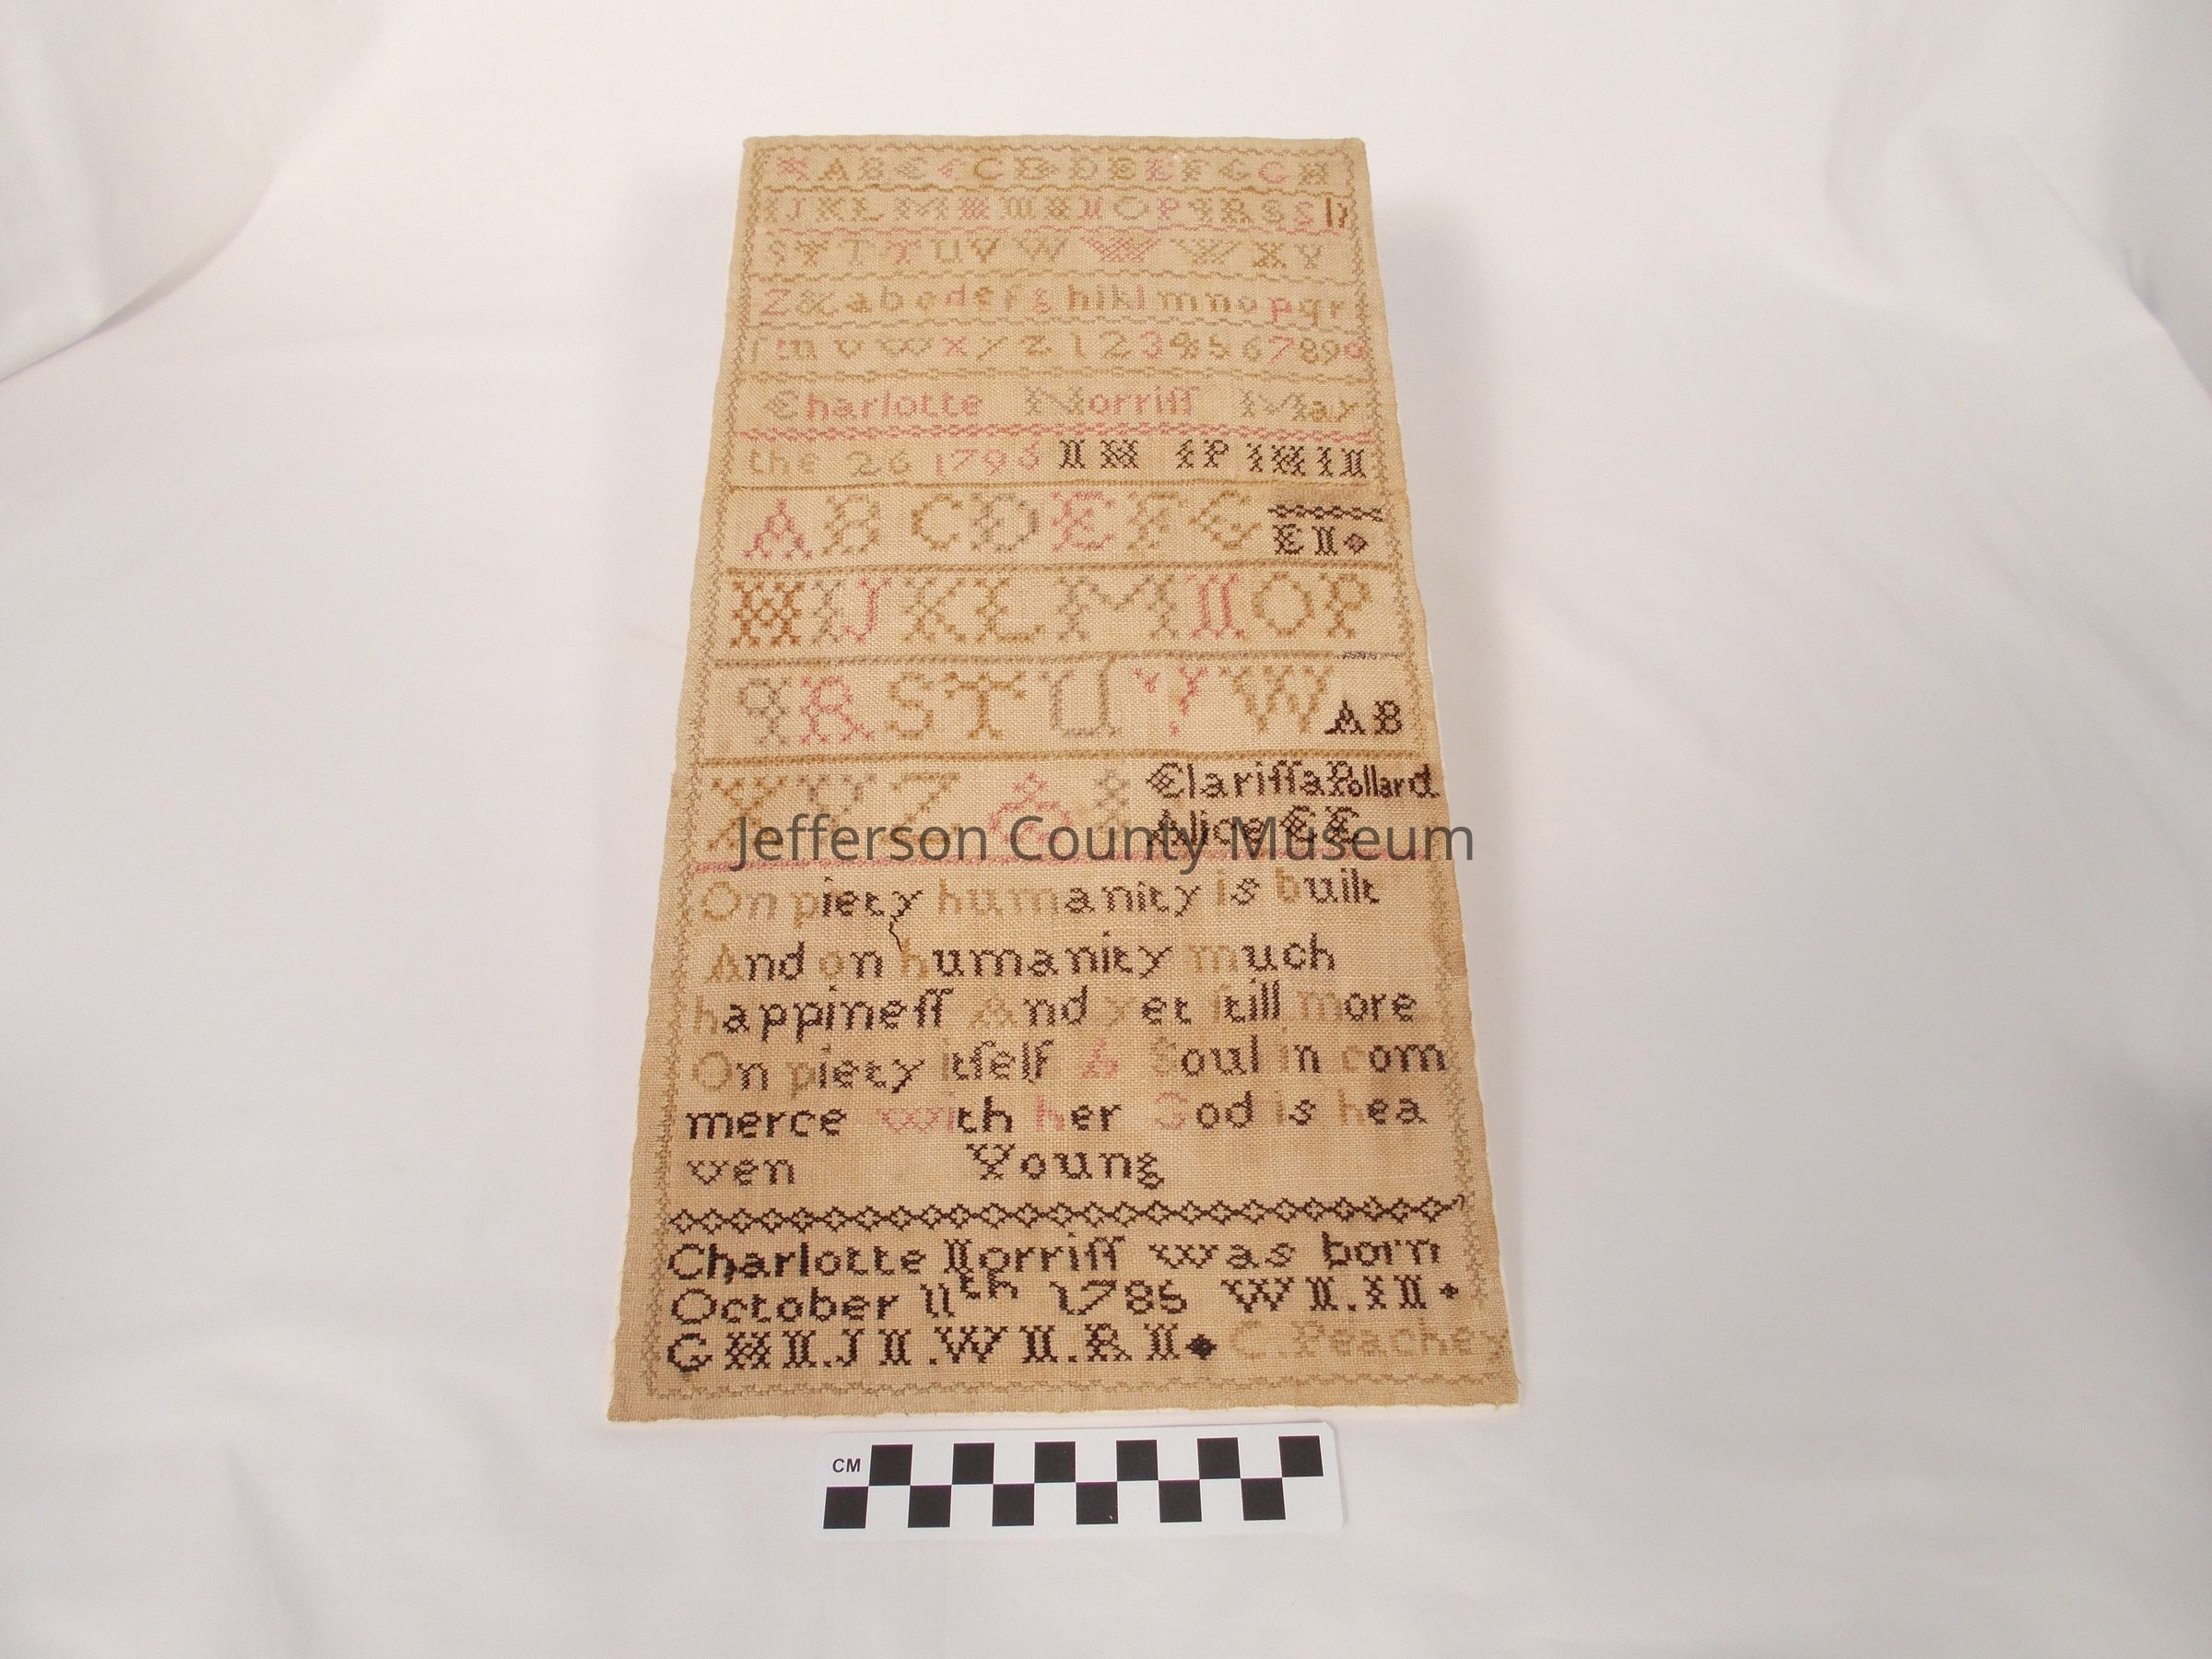 A B C D D E E F G G H
I J K L M O P q R S S
S T T T U V W W W X Y
Z & a b c d e f g h i k l m n o p q r
ſ t u v w x y z 1 2 3 4 5 6 7 8 9
Charlotte Norriſſ May
the 26 1796 IP
A B C D E F G
H I J K L M N O P
q R S T U V W A B
X Y Z & Clariſſa Pollard
Alice
Jefferson County Museum
On piety humanity is built
And on humanity much
happineſſ And yet ſtill more
On piety itſelf A Soul in com
merce with her God is hea
ven Young
Charlotte Norriſſ was born
October 11th 1785 WN.IN
G HN.JN.WN.RN C.Peachey
CM